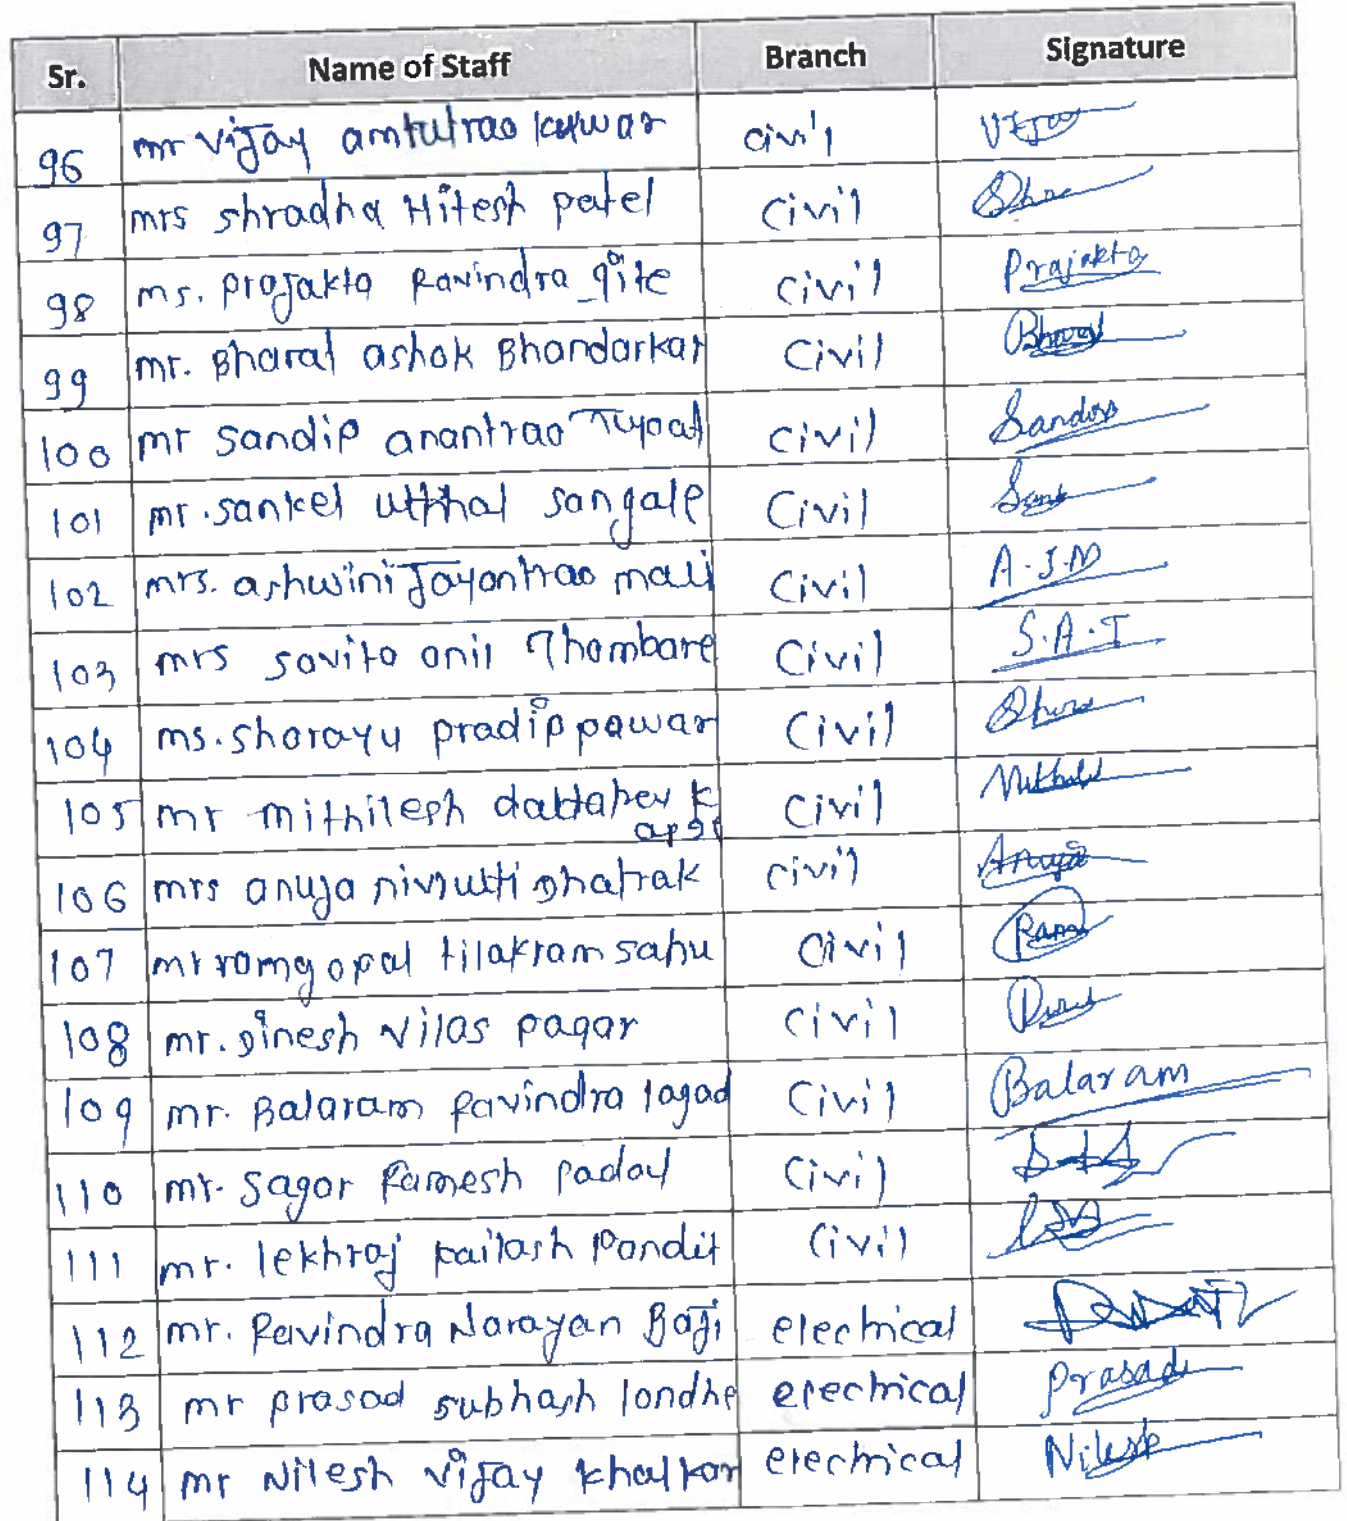 Sr. Name of Staff Branch Signature
96 mr vijay amtutrao civil Vijay
97 mrs shradha Hitesh patel civil Shra
98 ms. projakta Ravindra gite civil Prajakta
99 mr. Bharat ashok Bhandarkar civil Bharat
100 mr sandip anantrao civil Sandip
101 mr. sanket utthal sangale civil
102 mrs. ashwini Jayantrao mali civil A.J.M
103 mrs savita anil Thombare civil S.A.T
104 ms. sharayu pradip pawar civil
105 mr mithilesh civil
106 mrs anuja nivrutti Dhatrak civil Anuja
107 mr ramgopal tilakram sahu civil Ram
108 mr. Dinesh vilas pagar civil
109 mr. Balaram Ravindra lagad civil Balaram
110 mr. sagar Ramesh padol civil
111 mr. lekhraj kailash Pandit civil
112 mr. Ravindra Narayan Baji electrical
113 mr prasad subhash londhe electrical Prasad
114 mr Nilesh vijay khalkar electrical Nilesh